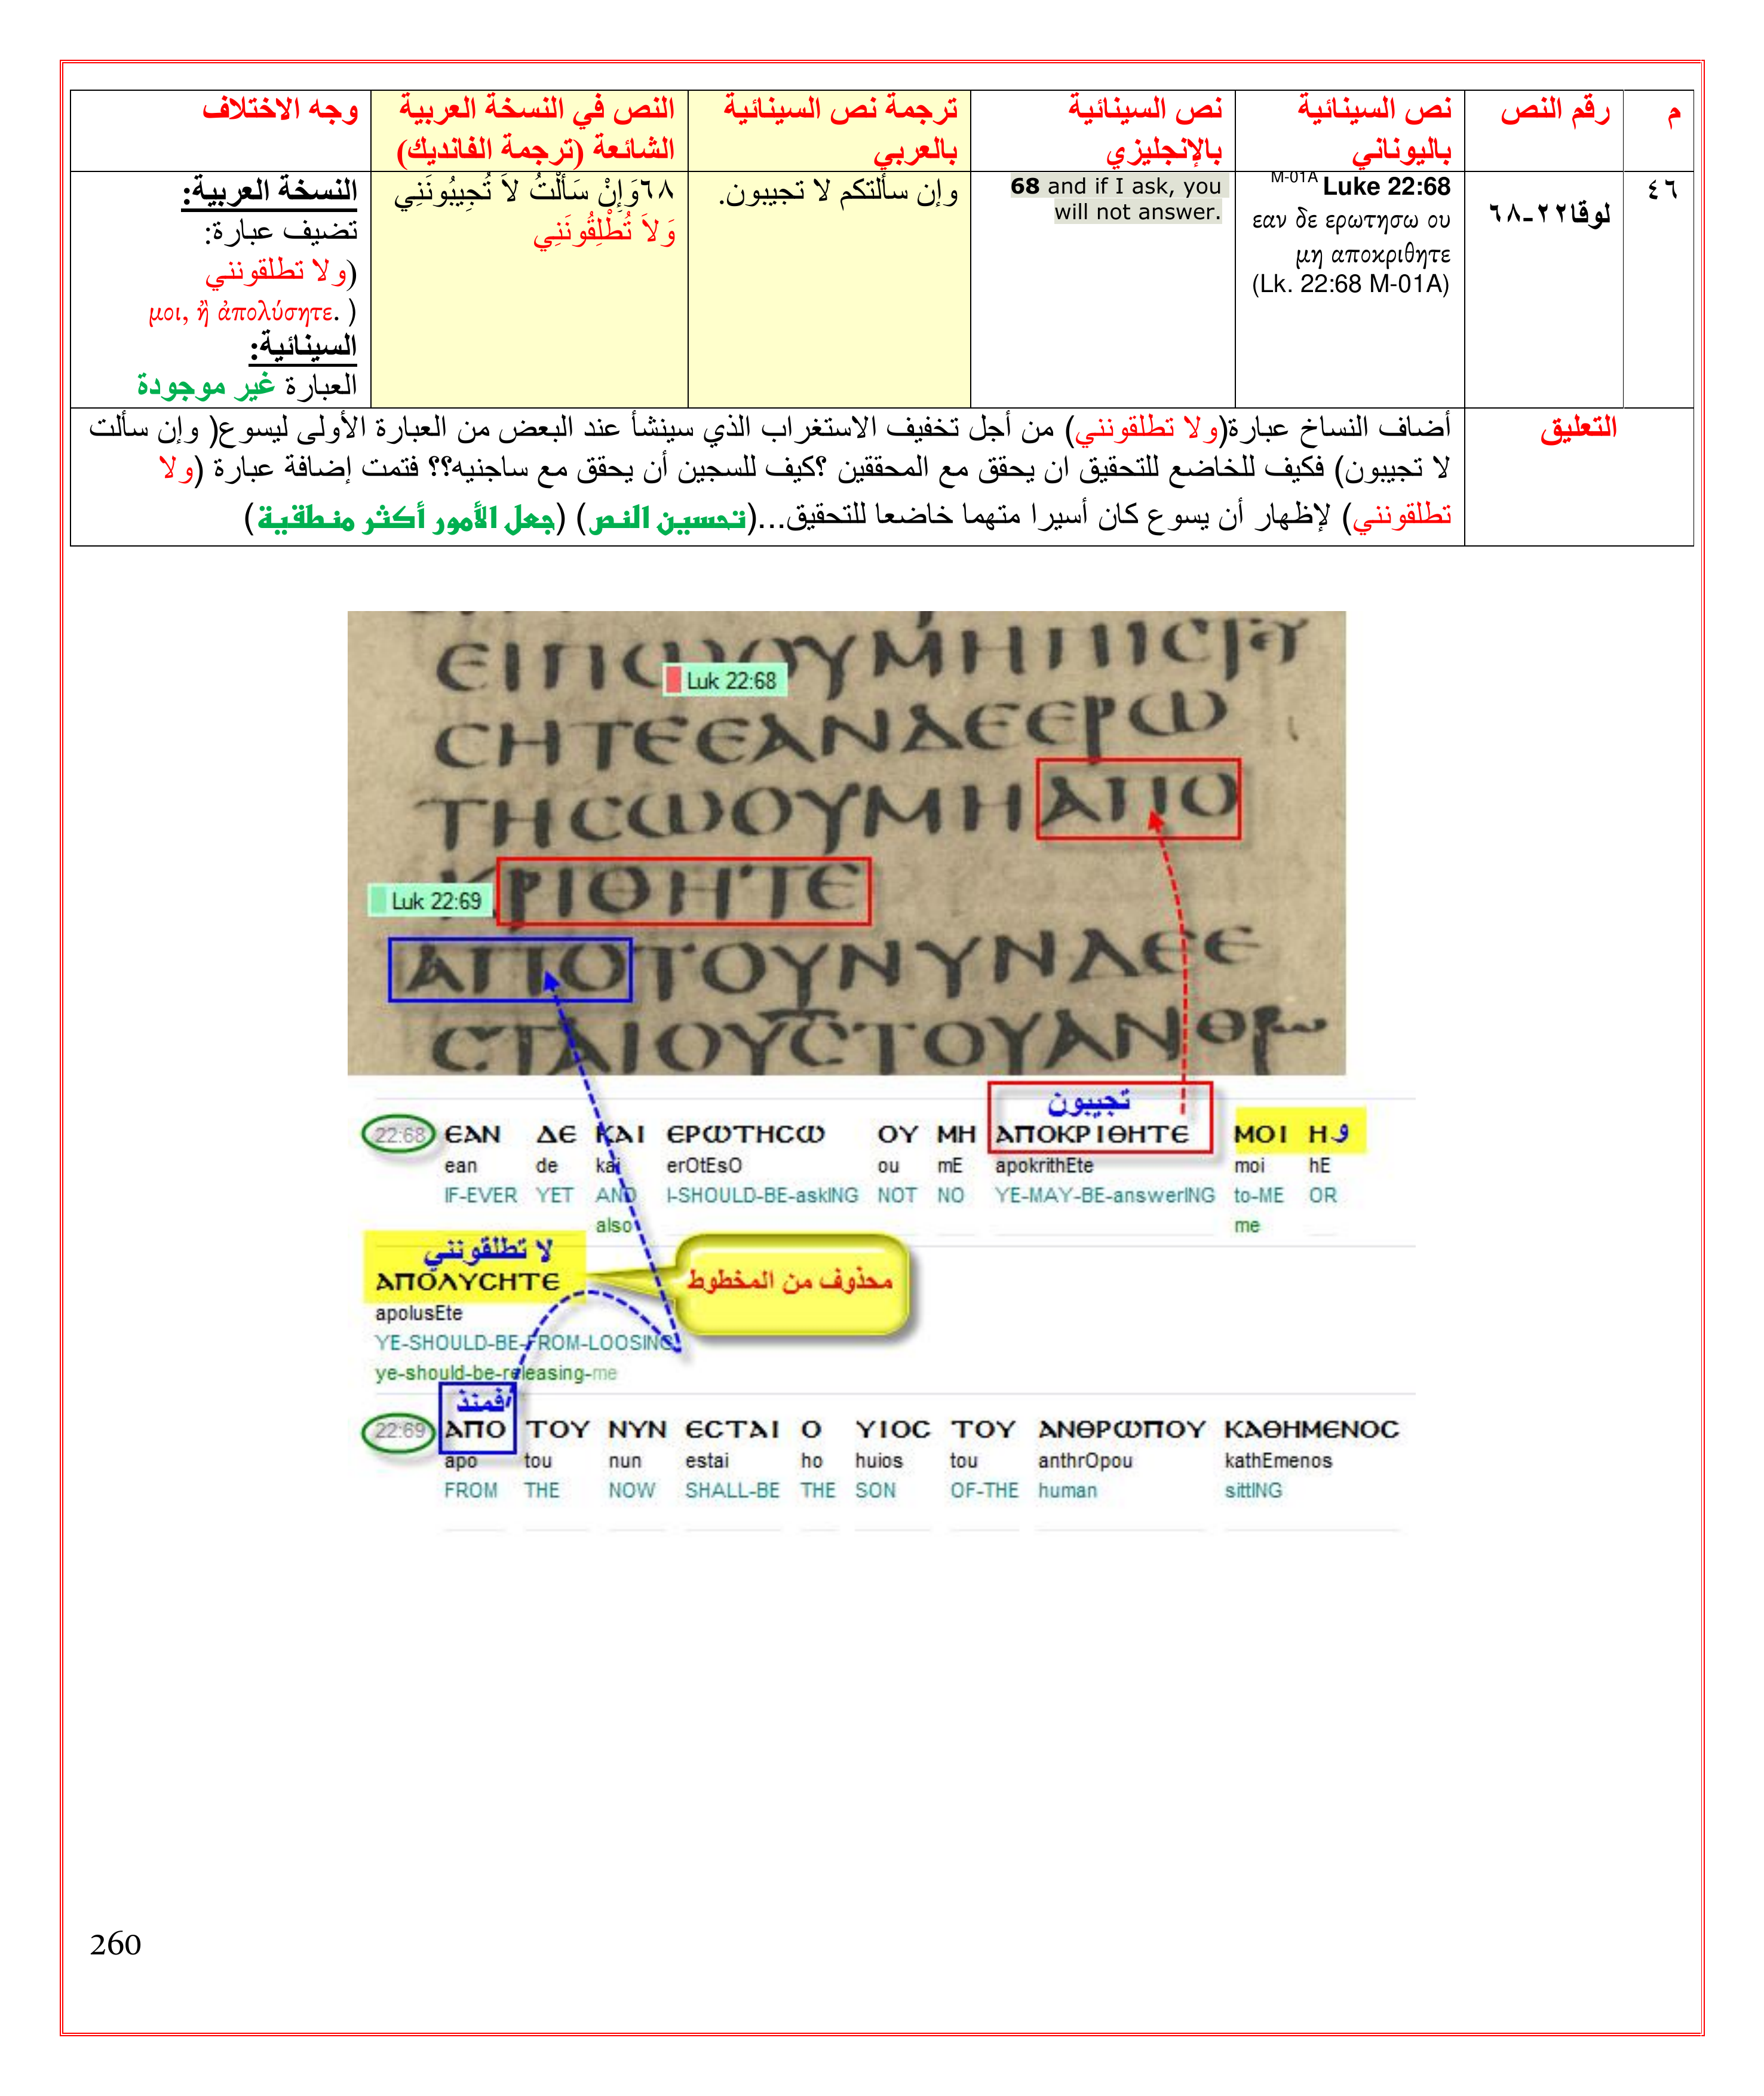 م
رقم النص
نص السينائية
باليوناني
نص السينائية
بالإنجليزي
ترجمة نص السينائية
بالعربي
النص في النسخة العربية
الشائعة (ترجمة الفانديك)
وجه الاختلاف
٤٦
لوقا٢٢-٦٨
M-01A Luke 22:68
εαν δε ερωτησω ου
μη αποκριθητε
(Lk. 22:68 M-01A)
68 and if I ask, you
will not answer.
وإن سألتكم لا تجيبون.
٦٨وَإِنْ سَأَلْتُ لاَ تُجِيبُونَنِي
وَلاَ تُطْلِقُونَنِي
النسخة العربية:
تضيف عبارة:
(ولا تطلقونني
μοι, ἢ ἀπολύσητε. )
السينائية:
العبارة غير موجودة
التعليق
أضاف النساخ عبارة(ولا تطلقونني) من أجل تخفيف الاستغراب الذي سينشأ عند البعض من العبارة الأولى ليسوع( وإن سألت
لا تجيبون) فكيف للخاضع للتحقيق ان يحقق مع المحققين ؟كيف للسجين أن يحقق مع ساجنيه؟؟ فتمت إضافة عبارة (ولا
تطلقونني) لإظهار أن يسوع كان أسيرا متهما خاضعا للتحقيق...(تحسين النص) (جعل الأمور أكثر منطقية)
Luk 22:68
ϹΗΤΕΕΑΝΔΕΕΡω
ΤΗϹωΟΥΜΗΑΠΟ
ΚΡΙΘΗΤΕ
Luk 22:69
ΑΠΟΤΟΥΝΥΝΔΕΕ
ϹΤΑΙΟΥϹΤΟΥΑΝΘΡω
تجيبون
22:68 ΕΑΝ ΔΕ ΚΑΙ ΕΡωΤΗϹω ΟΥ ΜΗ ΑΠΟΚΡΙΘΗΤΕ ΜΟΙ Η و
ean de kai erOtEsO ou mE apokrithEte moi hE
IF-EVER YET AND I-SHOULD-BE-askING NOT NO YE-MAY-BE-answerING to-ME OR
also me
لا تطلقونني
ΑΠΟΛΥϹΗΤΕ
محذوف من المخطوط
apolusEte
YE-SHOULD-BE-FROM-LOOSING
ye-should-be-releasing-me
فمنذ
22:69 ΑΠΟ ΤΟΥ ΝΥΝ ΕϹΤΑΙ Ο ΥΙΟϹ ΤΟΥ ΑΝΘΡωΠΟΥ ΚΑΘΗΜΕΝΟϹ
apo tou nun estai ho huios tou anthrOpou kathEmenos
FROM THE NOW SHALL-BE THE SON OF-THE human sittING
260